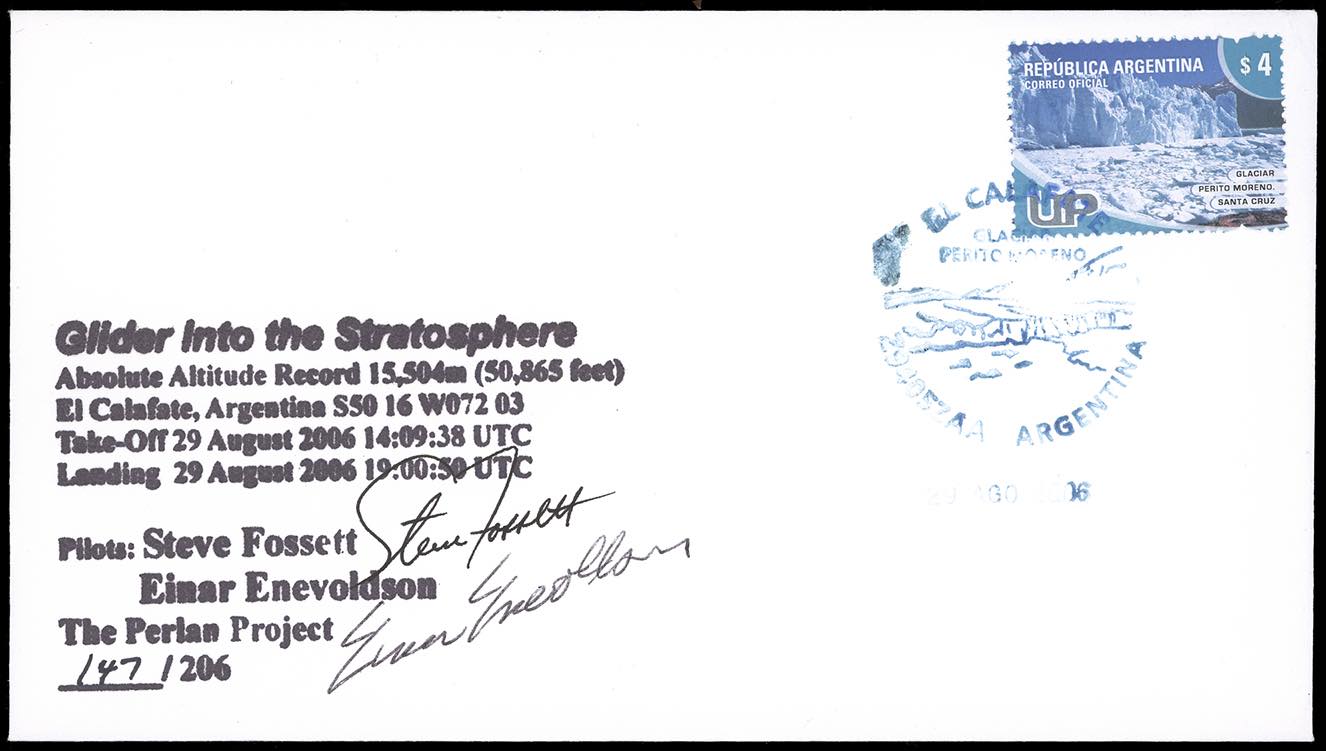 REPÚBLICA ARGENTINA
$ 4
CORREO OFICIAL
GLACIAR
PERITO MORENO.
SANTA CRUZ
UP
EL CALAFATE
GLACIAR
PERITO MORENO
ARGENTINA
29 AGO 2006
Glider Into the Stratosphere
Absolute Altitude Record 15,504m (50,865 feet)
El Calafate, Argentina S50 16 W072 03
Take-Off 29 August 2006 14:09:38 UTC
Landing 29 August 2006 19:00:50 UTC
Pilots: Steve Fossett
Steve Fossett
Einar Enevoldson
Einar Enevoldson
The Perlan Project
147 / 206